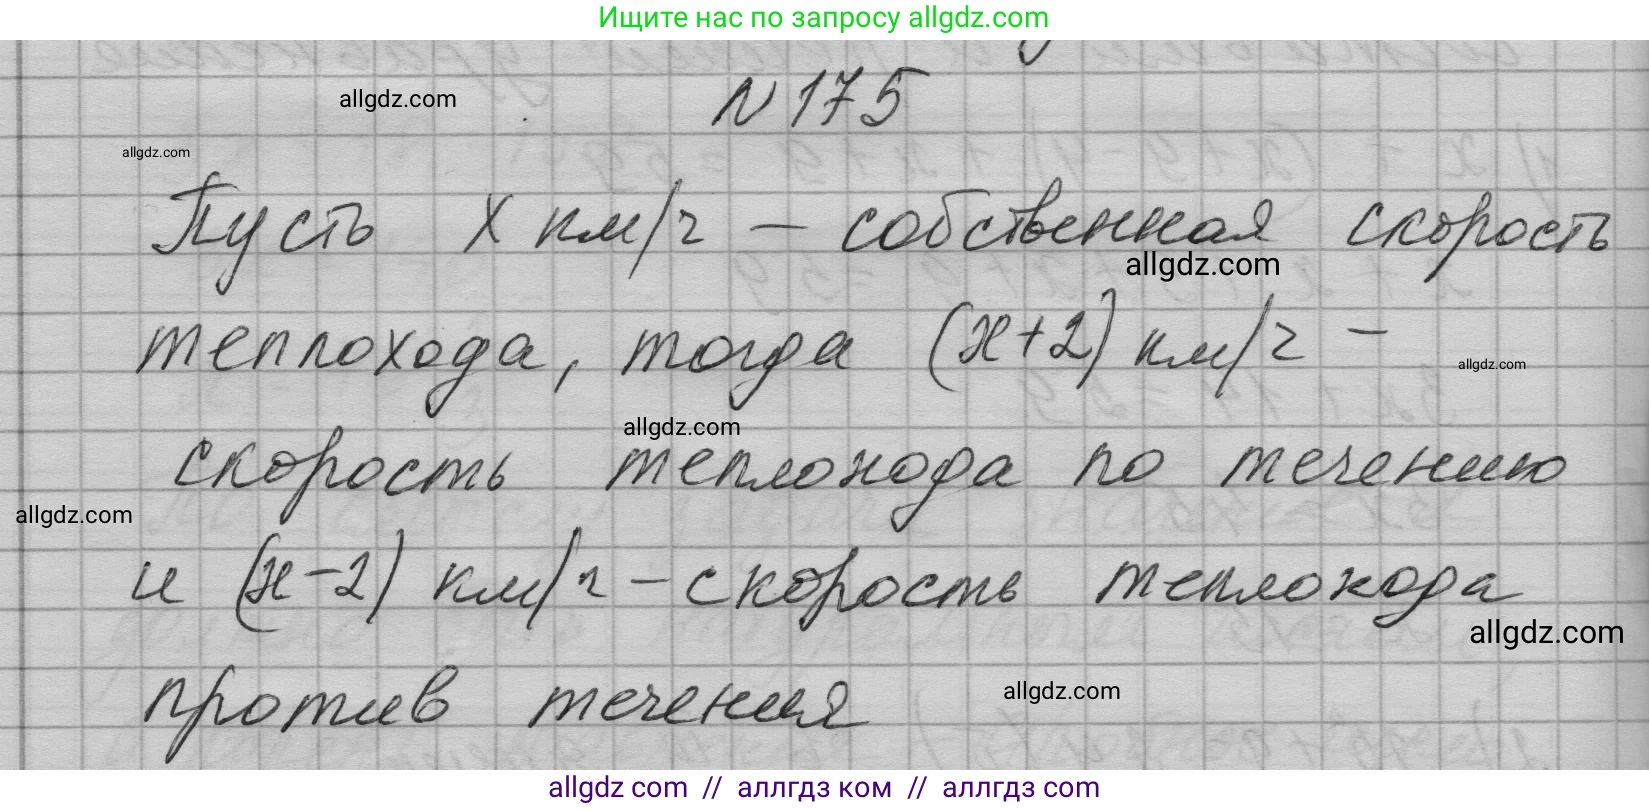 Ищите нас по запросу allgdz.com
allgdz.com
№ 175
allgdz.com
Пусть x км/ч – собственная скорость
allgdz.com
теплохода, тогда (x+2) км/ч –
allgdz.com
allgdz.com
скорость теплохода по течению
allgdz.com
и (x-2) км/ч – скорость теплохода
allgdz.com
против течения
allgdz.com
allgdz com // аллгдз ком // аллгдз com